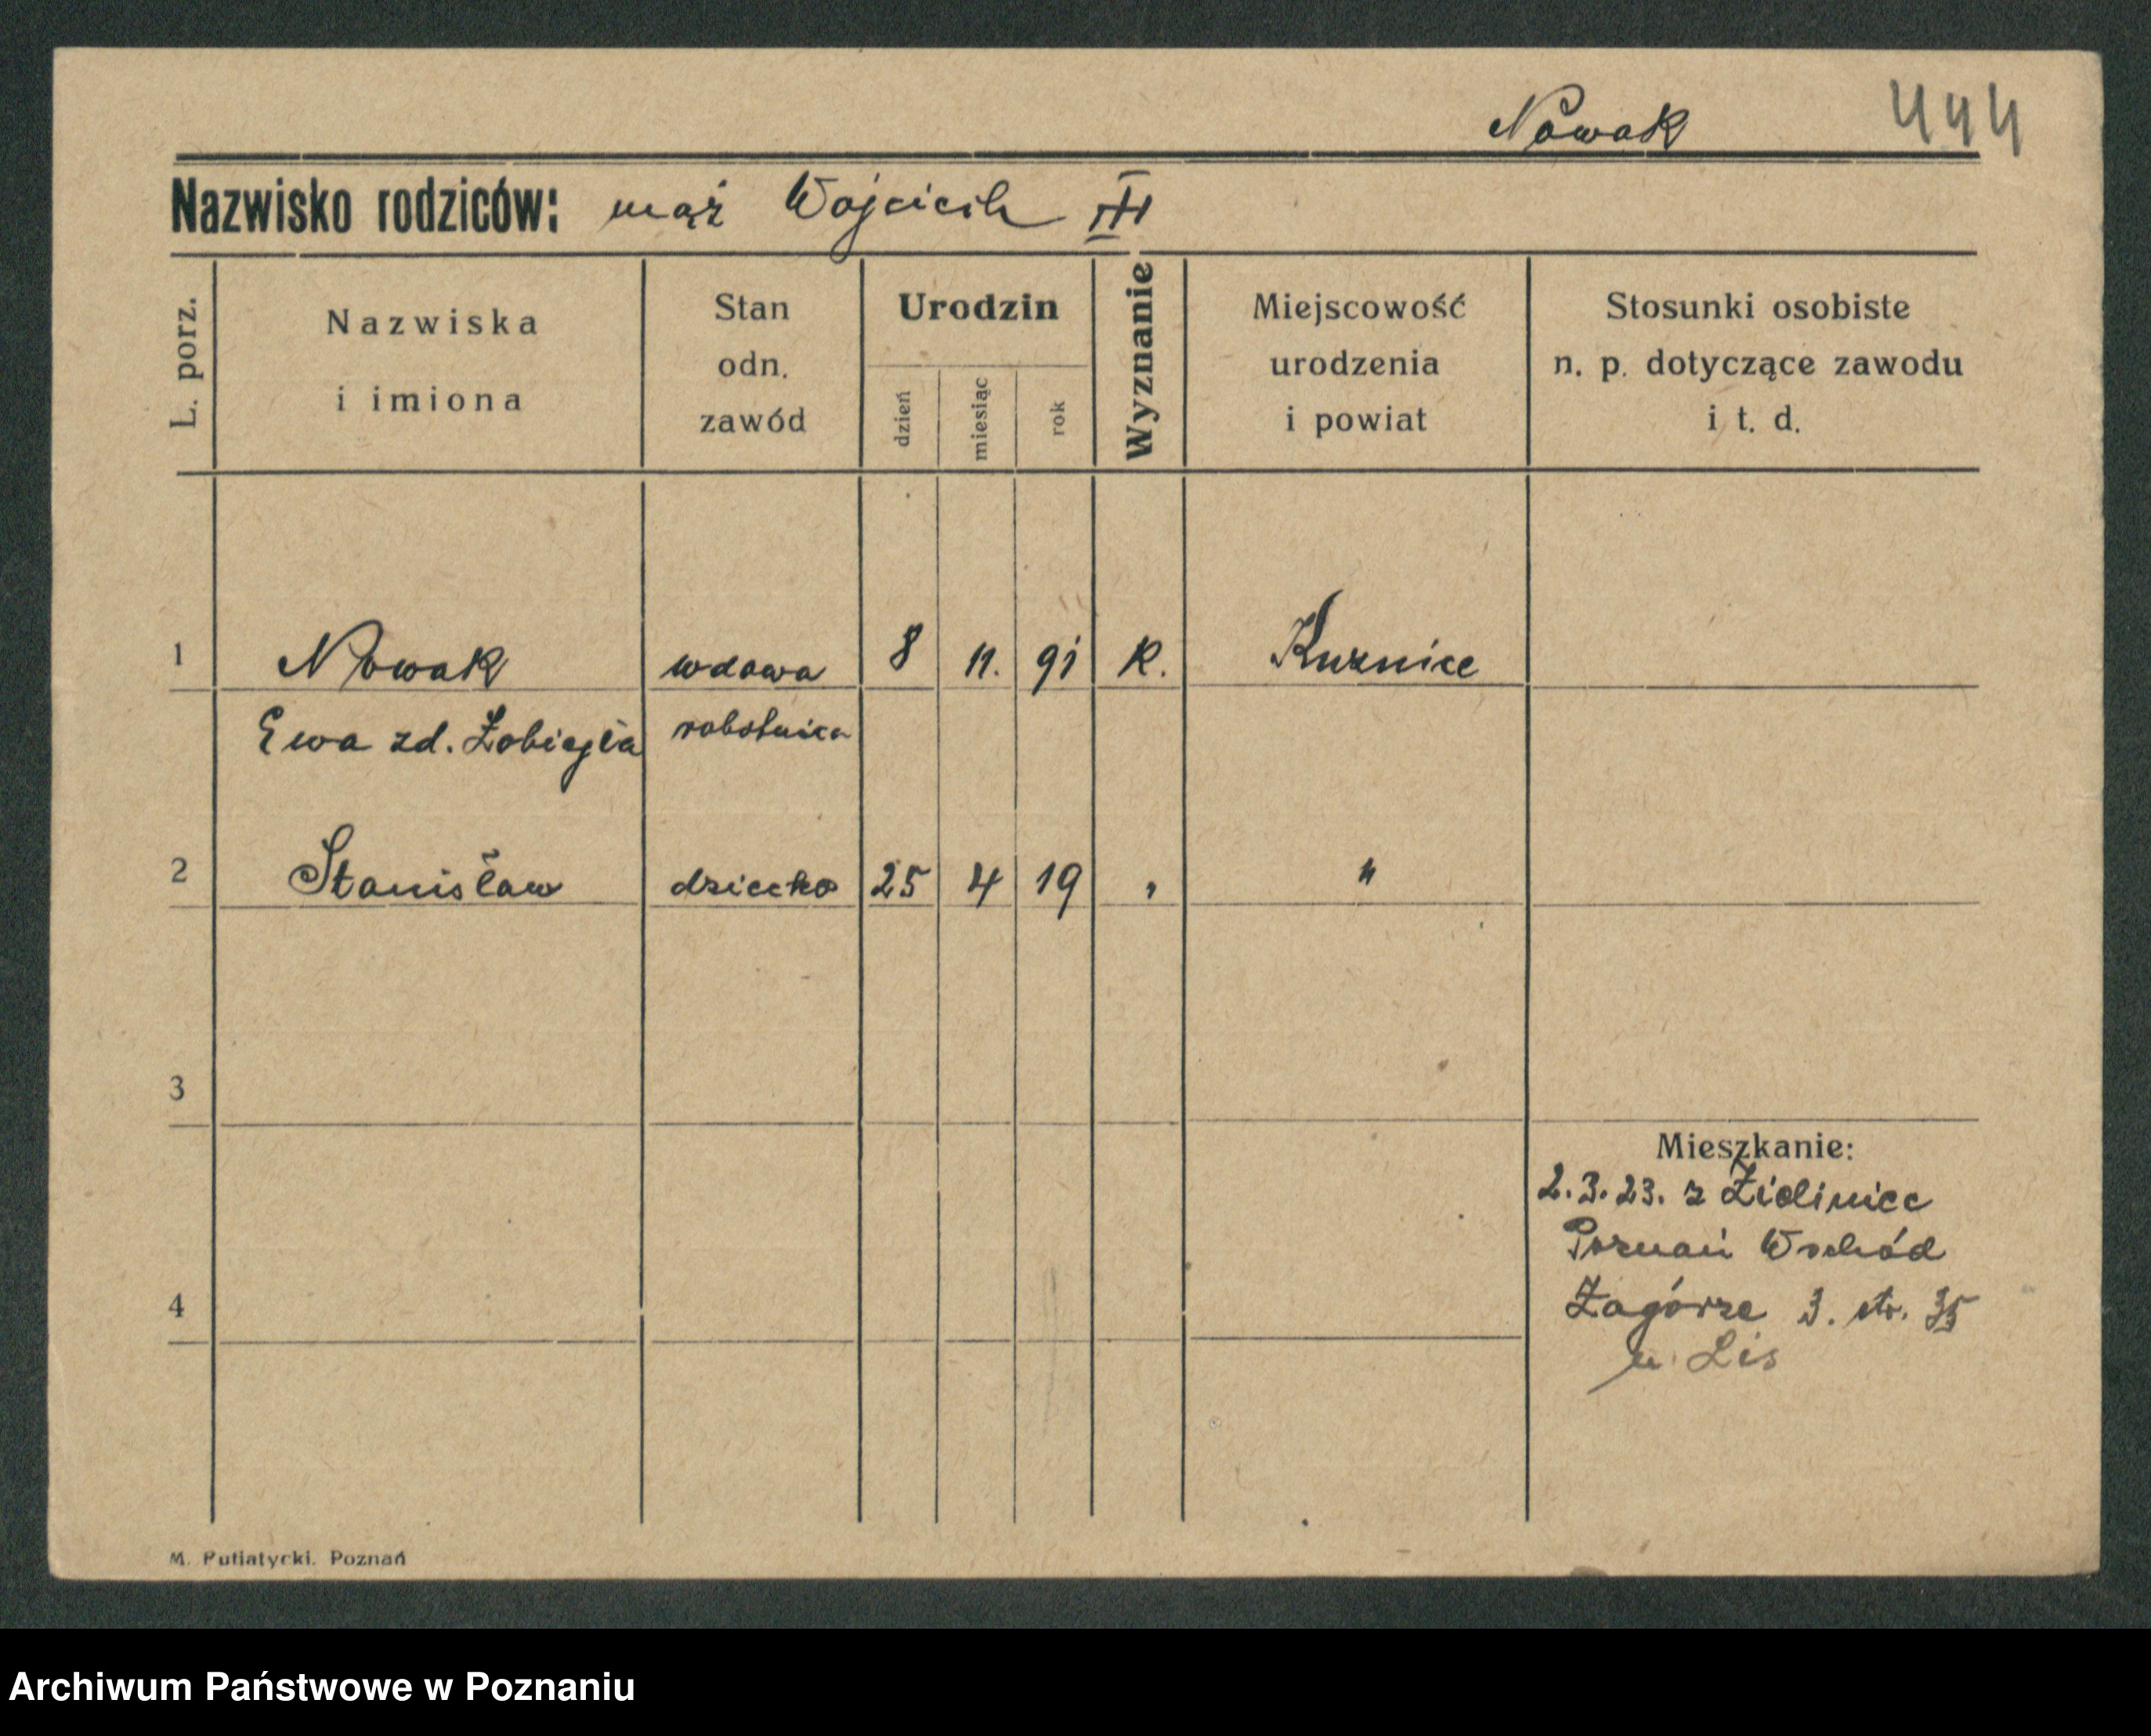 Nowak 444
Nazwisko rodziców: mąż Wojciech III
L. porz.
Nazwiska
i imiona
Stan
odn.
zawód
Urodzin
dzień
miesiąc
rok
Wyznanie
Miejscowość
urodzenia
i powiat
Stosunki osobiste
n. p. dotyczące zawodu
i t. d.
1 Nowak wdowa 8 11. 91 K.
Ewa zd. robotnica
2 Stanisław dziecko 25 4 19 " "
3
Mieszkanie:
2.3.23. z
Poznań Wschód
4
Zagórze 3. str. 35
u Lis
M. Putiatycki. Poznań
Archiwum Państwowe w Poznaniu